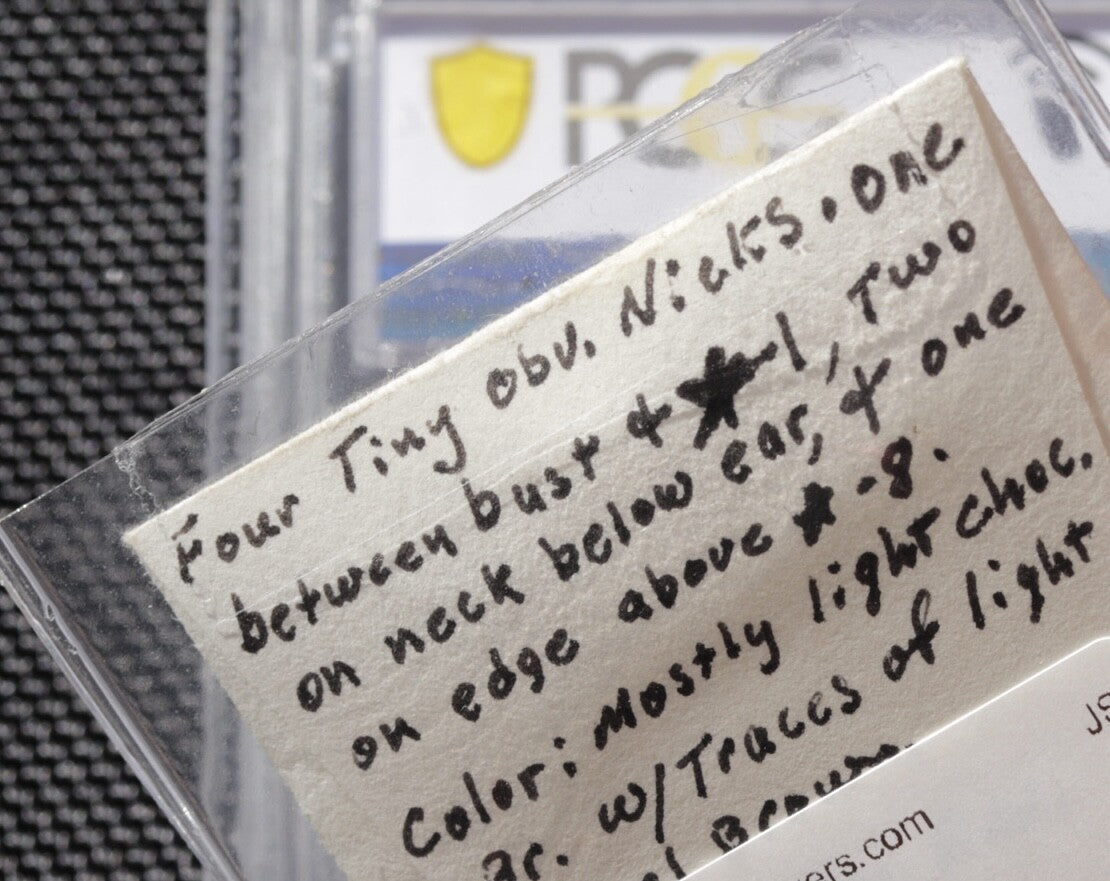 PCG
Four Tiny obv. Nicks. one
between bust & ★-1, Two
on neck below ear, & one
on edge above ★-8.
Color: Mostly light choc.
w/Traces of light
JS
ers.com